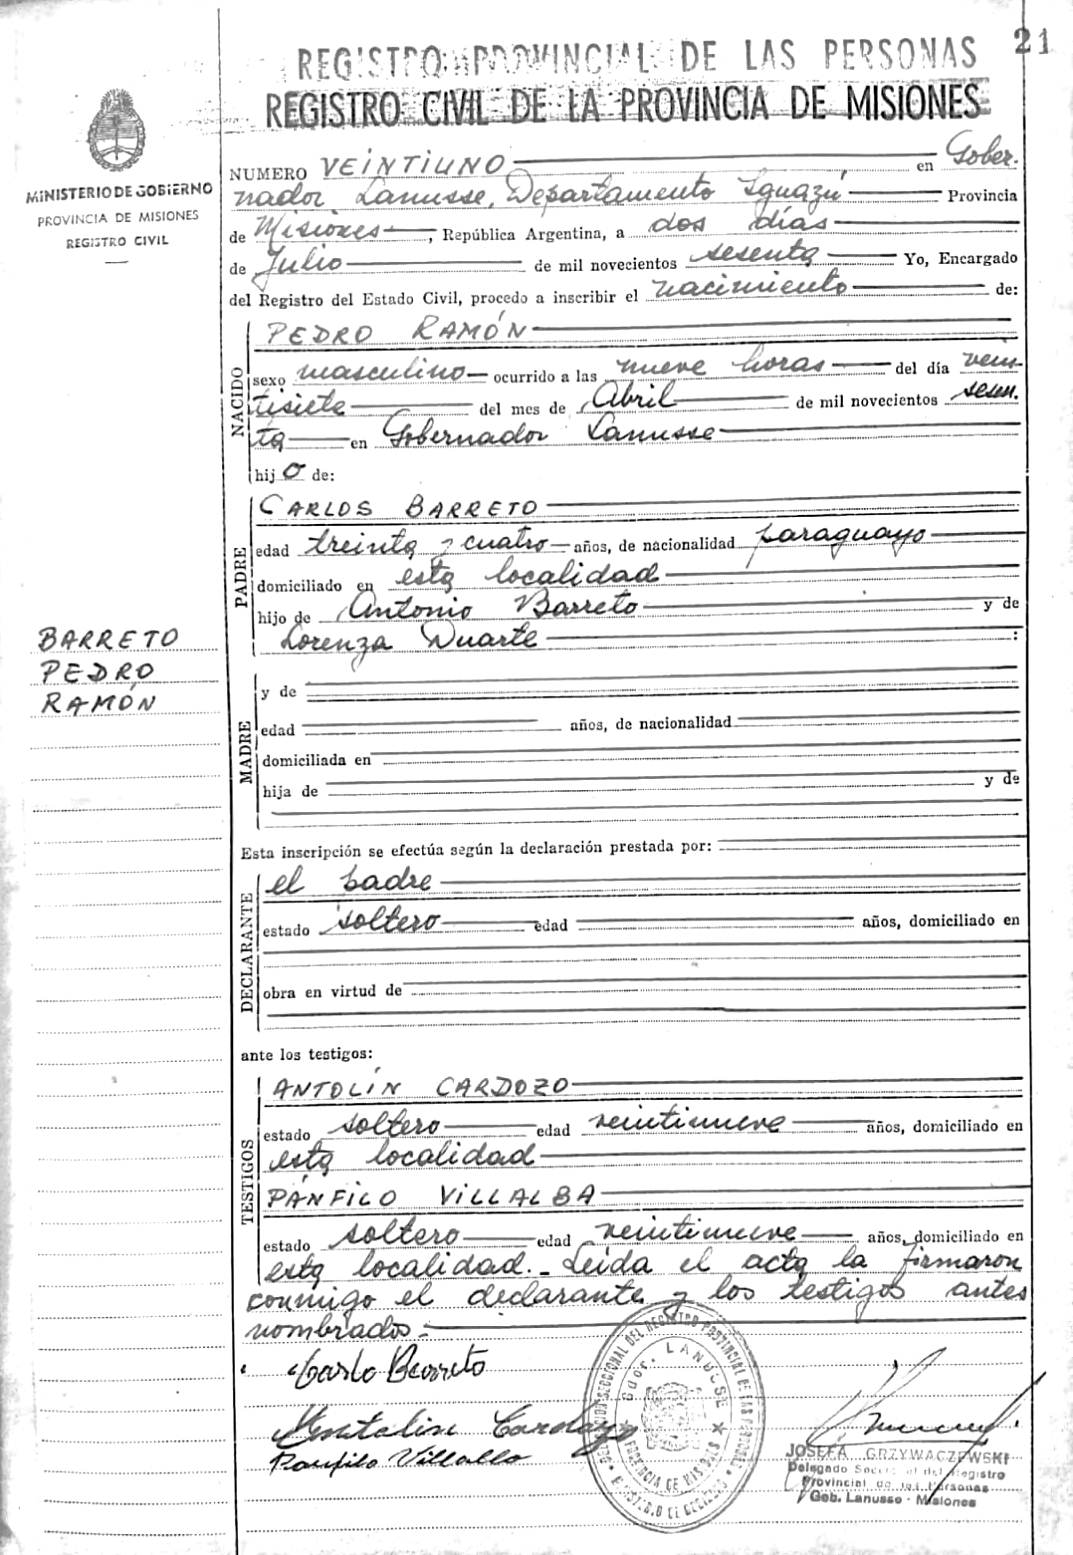 21
REGISTRO PROVINCIAL DE LAS PERSONAS
REGISTRO CIVIL DE LA PROVINCIA DE MISIONES
MINISTERIO DE GOBIERNO
PROVINCIA DE MISIONES
REGISTRO CIVIL
NUMERO VEINTIUNO en Gober-
nador Lanusse, Departamento Iguazú Provincia
de Misiones, República Argentina, a dos días
de Julio de mil novecientos sesenta Yo, Encargado
del Registro del Estado Civil, procedo a inscribir el nacimiento de:
NACIDO
PEDRO RAMÓN
sexo masculino ocurrido a las nueve horas del día vein-
tisiete del mes de Abril de mil novecientos sesen-
ta en Gobernador Lanusse
hijo de:
PADRE
CARLOS BARRETO
edad treinta y cuatro años, de nacionalidad paraguayo
domiciliado en esta localidad
hijo de Antonio Barreto y de
Lorenza Duarte :
BARRETO
PEDRO
RAMÓN
MADRE
y de
edad años, de nacionalidad
domiciliada en
hija de y de
Esta inscripción se efectúa según la declaración prestada por:
DECLARANTE
el padre
estado soltero edad años, domiciliado en
obra en virtud de
ante los testigos:
TESTIGOS
ANTOLÍN CARDOZO
estado soltero edad veintinueve años, domiciliado en
esta localidad
PÁNFILO VILLALBA
estado soltero edad veintinueve años, domiciliado en
esta localidad.- Leída el acta la firmaron
conmigo el declarante y los testigos antes
nombrados.-
Carlo Barreto
Antalin Cardozo
Panfilo Villalba
SECCIONAL DEL REGISTRO PROVINCIAL DE LAS PERSONAS
GDOR. LANUSSE
PROVINCIA DE MISIONES
MINISTERIO DE GOBIERNO
JOSEFA GRZYWACZEWSKI
Delegado Seccional del Registro
Provincial de las Personas
Gob. Lanusse - Misiones